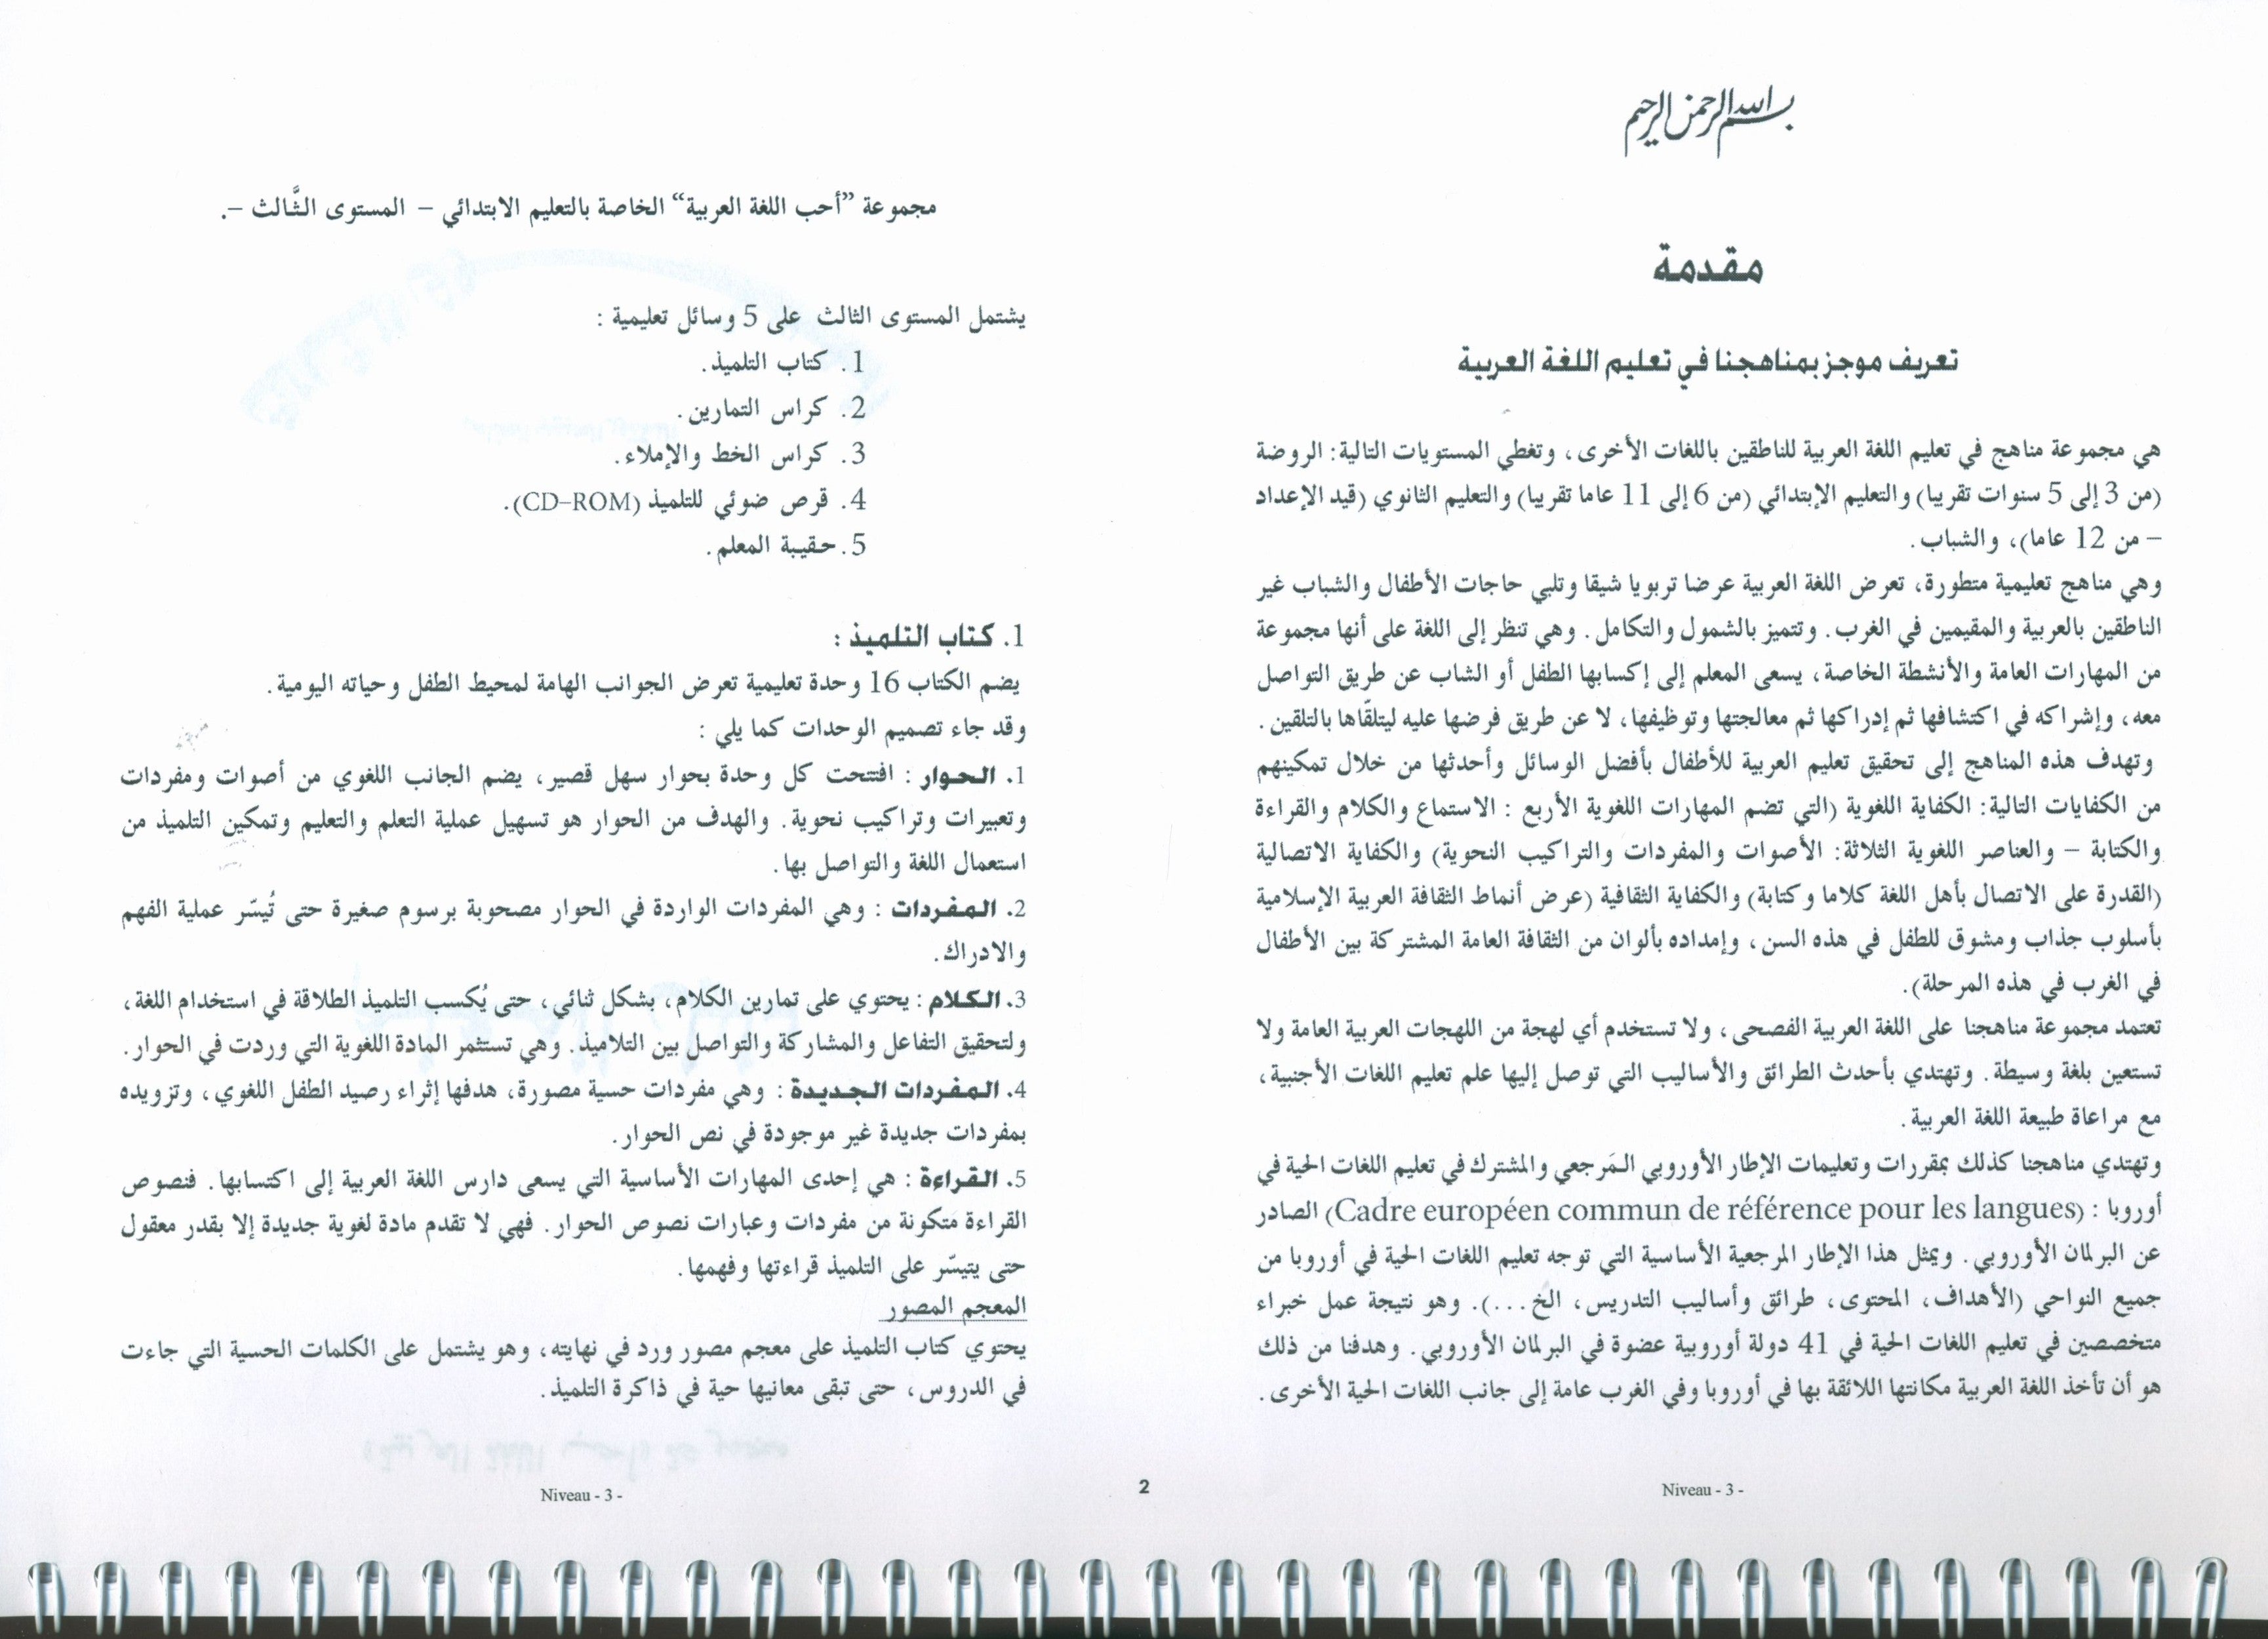 بسم الله الرحمن الرحيم
مقدمة
تعريف موجز بمناهجنا في تعليم اللغة العربية
هي مجموعة مناهج في تعليم اللغة العربية للناطقين باللغات الأخرى، وتغطي المستويات التالية: الروضة
(من 3 إلى 5 سنوات تقريبا) والتعليم الإبتدائي (من 6 إلى 11 عاما تقريبا) والتعليم الثانوي (قيد الإعداد
– من 12 عاما)، والشباب.
وهي مناهج تعليمية متطورة، تعرض اللغة العربية عرضا تربويا شيقا وتلبي حاجات الأطفال والشباب غير
الناطقين بالعربية والمقيمين في الغرب. وتتميز بالشمول والتكامل. وهي تنظر إلى اللغة على أنها مجموعة
من المهارات العامة والأنشطة الخاصة، يسعى المعلم إلى إكسابها الطفل أو الشاب عن طريق التواصل
معه، وإشراكه في اكتشافها ثم إدراكها ثم معالجتها وتوظيفها، لا عن طريق فرضها عليه ليتلقّاها بالتلقين.
وتهدف هذه المناهج إلى تحقيق تعليم العربية للأطفال بأفضل الوسائل وأحدثها من خلال تمكينهم
من الكفايات التالية: الكفاية اللغوية (التي تضم المهارات اللغوية الأربع : الاستماع والكلام والقراءة
والكتابة – والعناصر اللغوية الثلاثة: الأصوات والمفردات والتراكيب النحوية) والكفاية الاتصالية
(القدرة على الاتصال بأهل اللغة كلاما وكتابة) والكفاية الثقافية (عرض أنماط الثقافة العربية الإسلامية
بأسلوب جذاب ومشوق للطفل في هذه السن، وإمداده بألوان من الثقافة العامة المشتركة بين الأطفال
في الغرب في هذه المرحلة).
تعتمد مجموعة مناهجنا على اللغة العربية الفصحى، ولا تستخدم أي لهجة من اللهجات العربية العامة ولا
تستعين بلغة وسيطة. وتهتدي بأحدث الطرائق والأساليب التي توصل إليها علم تعليم اللغات الأجنبية،
مع مراعاة طبيعة اللغة العربية.
وتهتدي مناهجنا كذلك بمقررات وتعليمات الإطار الأوروبي المَرجعي والمشترك في تعليم اللغات الحية في
أوروبا : (Cadre européen commun de référence pour les langues) الصادر
عن البرلمان الأوروبي. ويمثل هذا الإطار المرجعية الأساسية التي توجه تعليم اللغات الحية في أوروبا من
جميع النواحي (الأهداف، المحتوى، طرائق وأساليب التدريس، الخ...). وهو نتيجة عمل خبراء
متخصصين في تعليم اللغات الحية في 41 دولة أوروبية عضوة في البرلمان الأوروبي. وهدفنا من ذلك
هو أن تأخذ اللغة العربية مكانتها اللائقة بها في أوروبا وفي الغرب عامة إلى جانب اللغات الحية الأخرى.
Niveau - 3 -
2
مجموعة ”أحب اللغة العربية“ الخاصة بالتعليم الابتدائي – المستوى الثَّالث –.
يشتمل المستوى الثالث على 5 وسائل تعليمية :
1. كتاب التلميذ.
2. كراس التمارين.
3. كراس الخط والإملاء.
4. قرص ضوئي للتلميذ (CD-ROM).
5. حقيبة المعلم.
1. كتاب التلميذ :
يضم الكتاب 16 وحدة تعليمية تعرض الجوانب الهامة لمحيط الطفل وحياته اليومية.
وقد جاء تصميم الوحدات كما يلي :
1. الحوار : افتتحت كل وحدة بحوار سهل قصير، يضم الجانب اللغوي من أصوات ومفردات
وتعبيرات وتراكيب نحوية. والهدف من الحوار هو تسهيل عملية التعلم والتعليم وتمكين التلميذ من
استعمال اللغة والتواصل بها.
2. المفردات : وهي المفردات الواردة في الحوار مصحوبة برسوم صغيرة حتى تُيسّر عملية الفهم
والادراك.
3. الكلام : يحتوي على تمارين الكلام، بشكل ثنائي، حتى يُكسب التلميذ الطلاقة في استخدام اللغة،
ولتحقيق التفاعل والمشاركة والتواصل بين التلاميذ. وهي تستثمر المادة اللغوية التي وردت في الحوار.
4. المفردات الجديدة : وهي مفردات حسية مصورة، هدفها إثراء رصيد الطفل اللغوي، وتزويده
بمفردات جديدة غير موجودة في نص الحوار.
5. القراءة : هي إحدى المهارات الأساسية التي يسعى دارس اللغة العربية إلى اكتسابها. فنصوص
القراءة متكونة من مفردات وعبارات نصوص الحوار. فهي لا تقدم مادة لغوية جديدة إلا بقدر معقول
حتى يتيسّر على التلميذ قراءتها وفهمها.
المعجم المصور
يحتوي كتاب التلميذ على معجم مصور ورد في نهايته، وهو يشتمل على الكلمات الحسية التي جاءت
في الدروس، حتى تبقى معانيها حية في ذاكرة التلميذ.
Niveau - 3 -